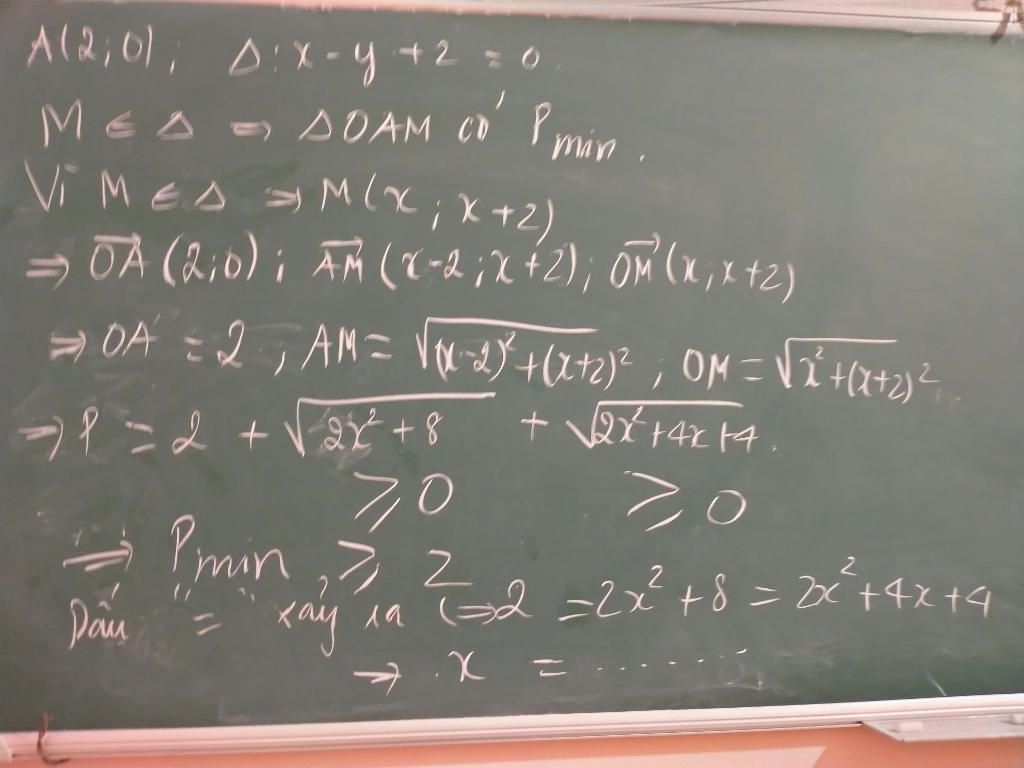 A(2;0); Δ: x - y + 2 = 0.
M ∈ Δ ⇒ ΔOAM có P min.
Vì M ∈ Δ ⇒ M(x; x+2)
⇒ \overrightarrow{OA} (2;0); \overrightarrow{AM} (x-2; x+2); \overrightarrow{OM} (x; x+2)
⇒ OA = 2, AM = √((x-2)² + (x+2)²; OM = √(x² + (x+2)²
⇒ P = 2 + √(2x² + 8) + √(2x² + 4x + 4).
⩾ 0 ⩾ 0
⇒ P min ⩾ 2
Dấu " = " xảy ra ⇔ 2 = 2x² + 8 = 2x² + 4x + 4
→ x = .......